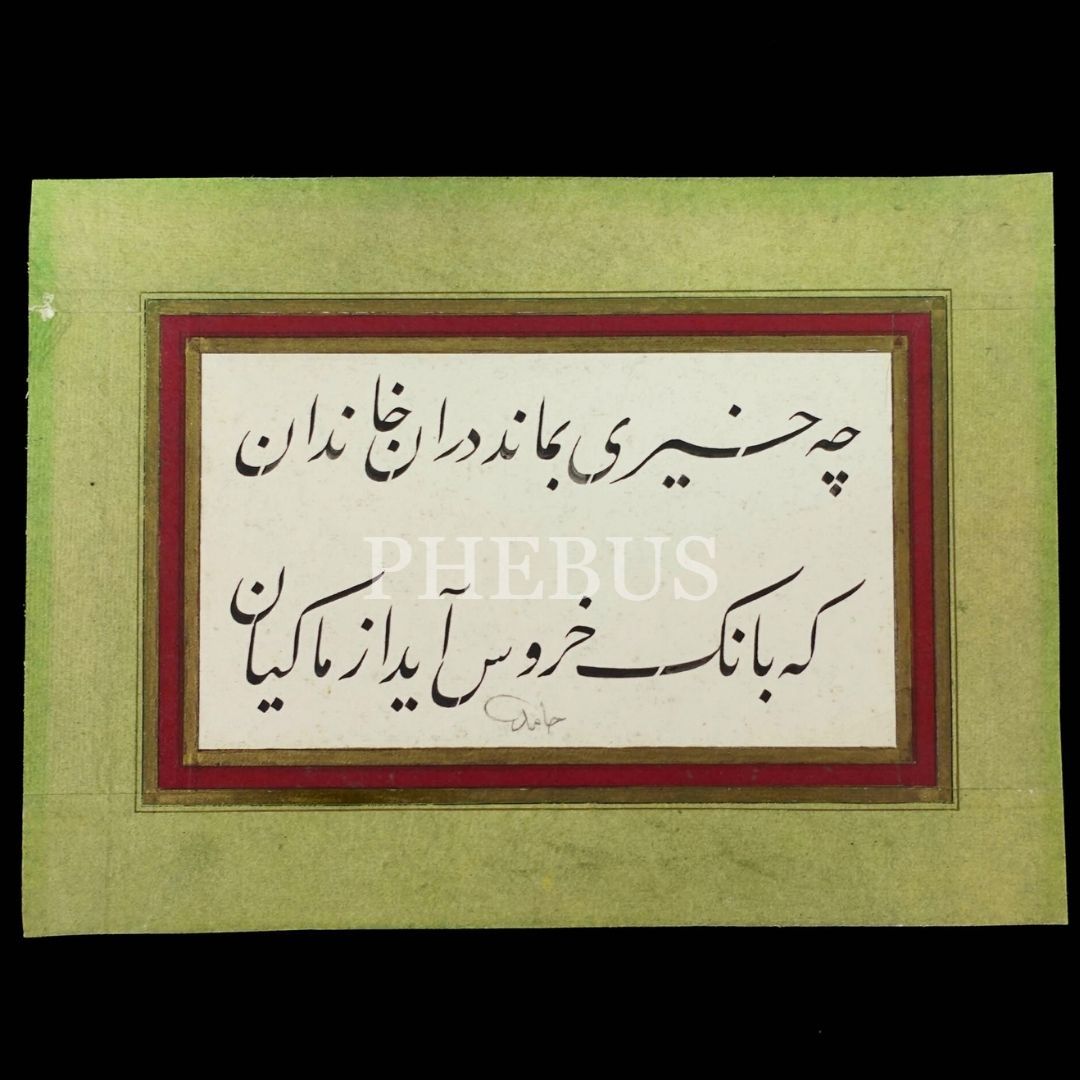 چه خیری بماند در ان خاندان
PHEBUS
که بانک خروس آید از ماکیان
حامد